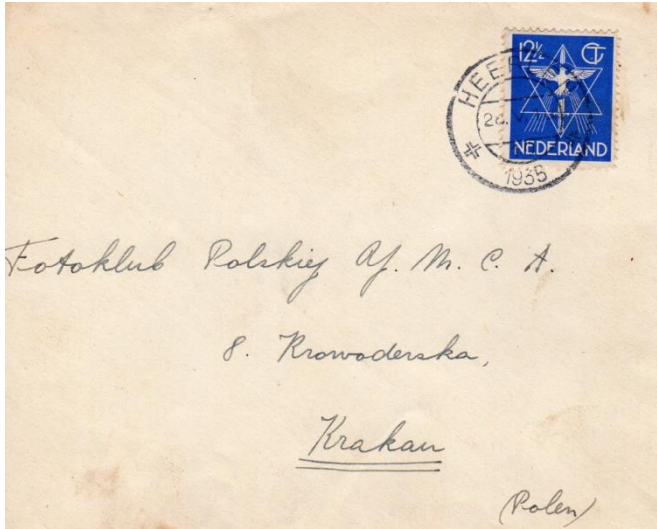 12½ CT
NEDERLAND
1935
Fotoklub Polskiej Y. M. C. A.
8. Krowoderska,
Krakau
(Polen)